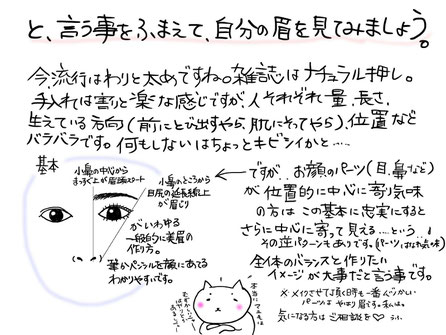 と、言う事をふまえて、自分の眉を見てみましょう。
今、流行はわりと太めですね。雑誌はナチュラル押し。
手入れは割と楽な感じですが、人それぞれ量、長さ、
生えている方向(前にとび出すやら、肌にそってやら)、位置など
バラバラです。何もしないはちょっとキビシイかと……
基本
小鼻の中心から
まっすぐ上が眉頭スタート
小鼻のところから
目尻の延長線上
が眉じり
がいわゆる
一般的に美眉の
作り方。
筆かペンシルを顔にあてる
わかりやすいです。
ですが‥お顔のパーツ(目、鼻など)
が位置的に中心に寄り気味
の方はこの基本に忠実にすると
さらに中心に寄って見える….という…!
その逆パターンもあります。(パーツはなれ気味)
全体のバランスと作りたい
イメージが大事だと言う事です。
※メイクさせて頂く時も一番んぅ〜かい
パーツはやはり眉です。私は。
気になる方は ご相談を♡ うふ